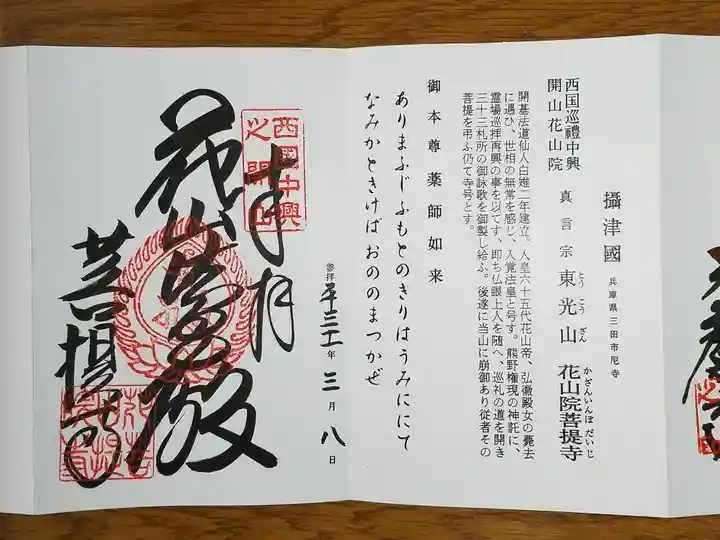 西国巡禮中興
開山花山院
攝津國
兵庫県三田市尼寺
真言宗
東光山
とうこうざん
花山院菩提寺
かざんいんぼだいじ
開基法道仙人白雉二年建立。人皇六十五代花山帝、弘徽殿女の薨去
に遇ひ、世相の無常を感じ、入覚法皇と号す。熊野権現の神託に、
霊場巡拝再興の事を以てす、即ち仏眼上人を随へ、巡礼の道を開き
三十三札所の御詠歌を御製し給ふ。後遂に当山に崩御あり従者その
菩提を弔ふ仍て寺号とす。
御本尊薬師如来
ありまふじふもとのきりはうみににて
なみかときけばおののまつかぜ
奉拝
西國中興
之開山
参拝平三十一年三月八日
花山法皇殿
菩提寺